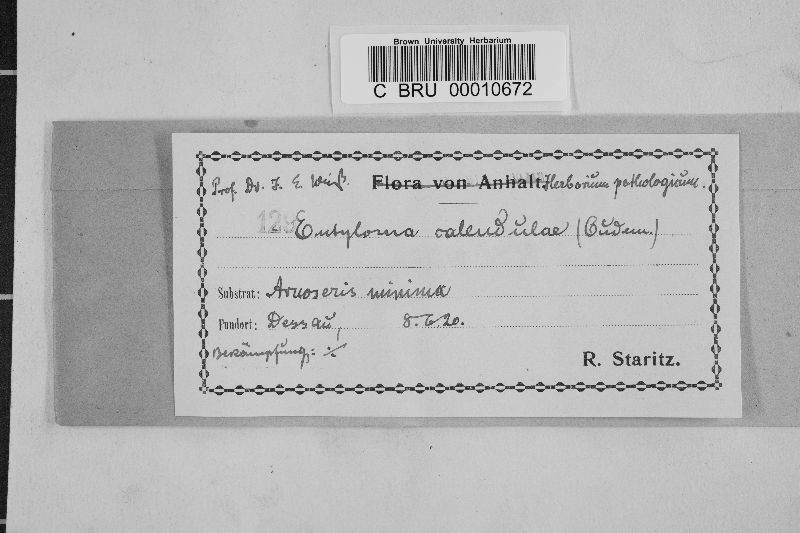 Brown University Herbarium
C BRU 00010672
Prof. Dr. J. E. Weiß. Flora von Anhalt. Herbarium pathologicum.
129 Entyloma calendulae (Oudem.)
Substrat: Arnoseris minima
Fundort: Dessau, 8.6.20.
Bekämpfung: ÷
R. Staritz.